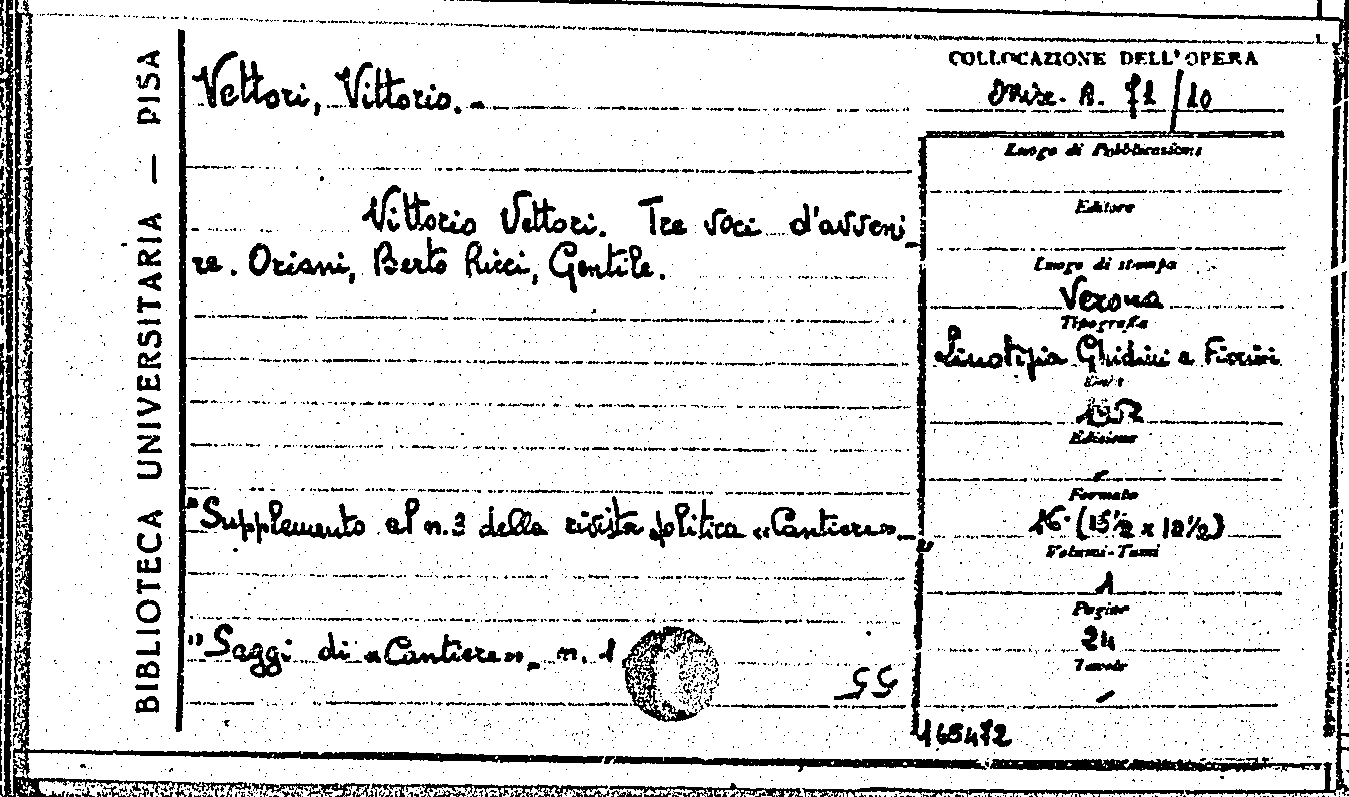 BIBLIOTECA UNIVERSITARIA — PISA
Vettori, Vittorio. -
Vittorio Vettori. Tre voci d'avveni-
re. Oriani, Berto Ricci, Gentile.
"Supplemento al n. 3 della rivista politica «Cantiere»_"
"Saggi di «Cantiere»_ n. 1.
55
COLLOCAZIONE DELL'OPERA
Misc. A. 71/10
Luogo di Pubblicazione
Editore
Luogo di stampa
Verona
Tipografia
Linotipia Ghidini e Fiorini
Edizione
-
Formato
16° (15½ x 12½)
Volumi-Tomi
1
Pagine
24
Tavole
-
165472